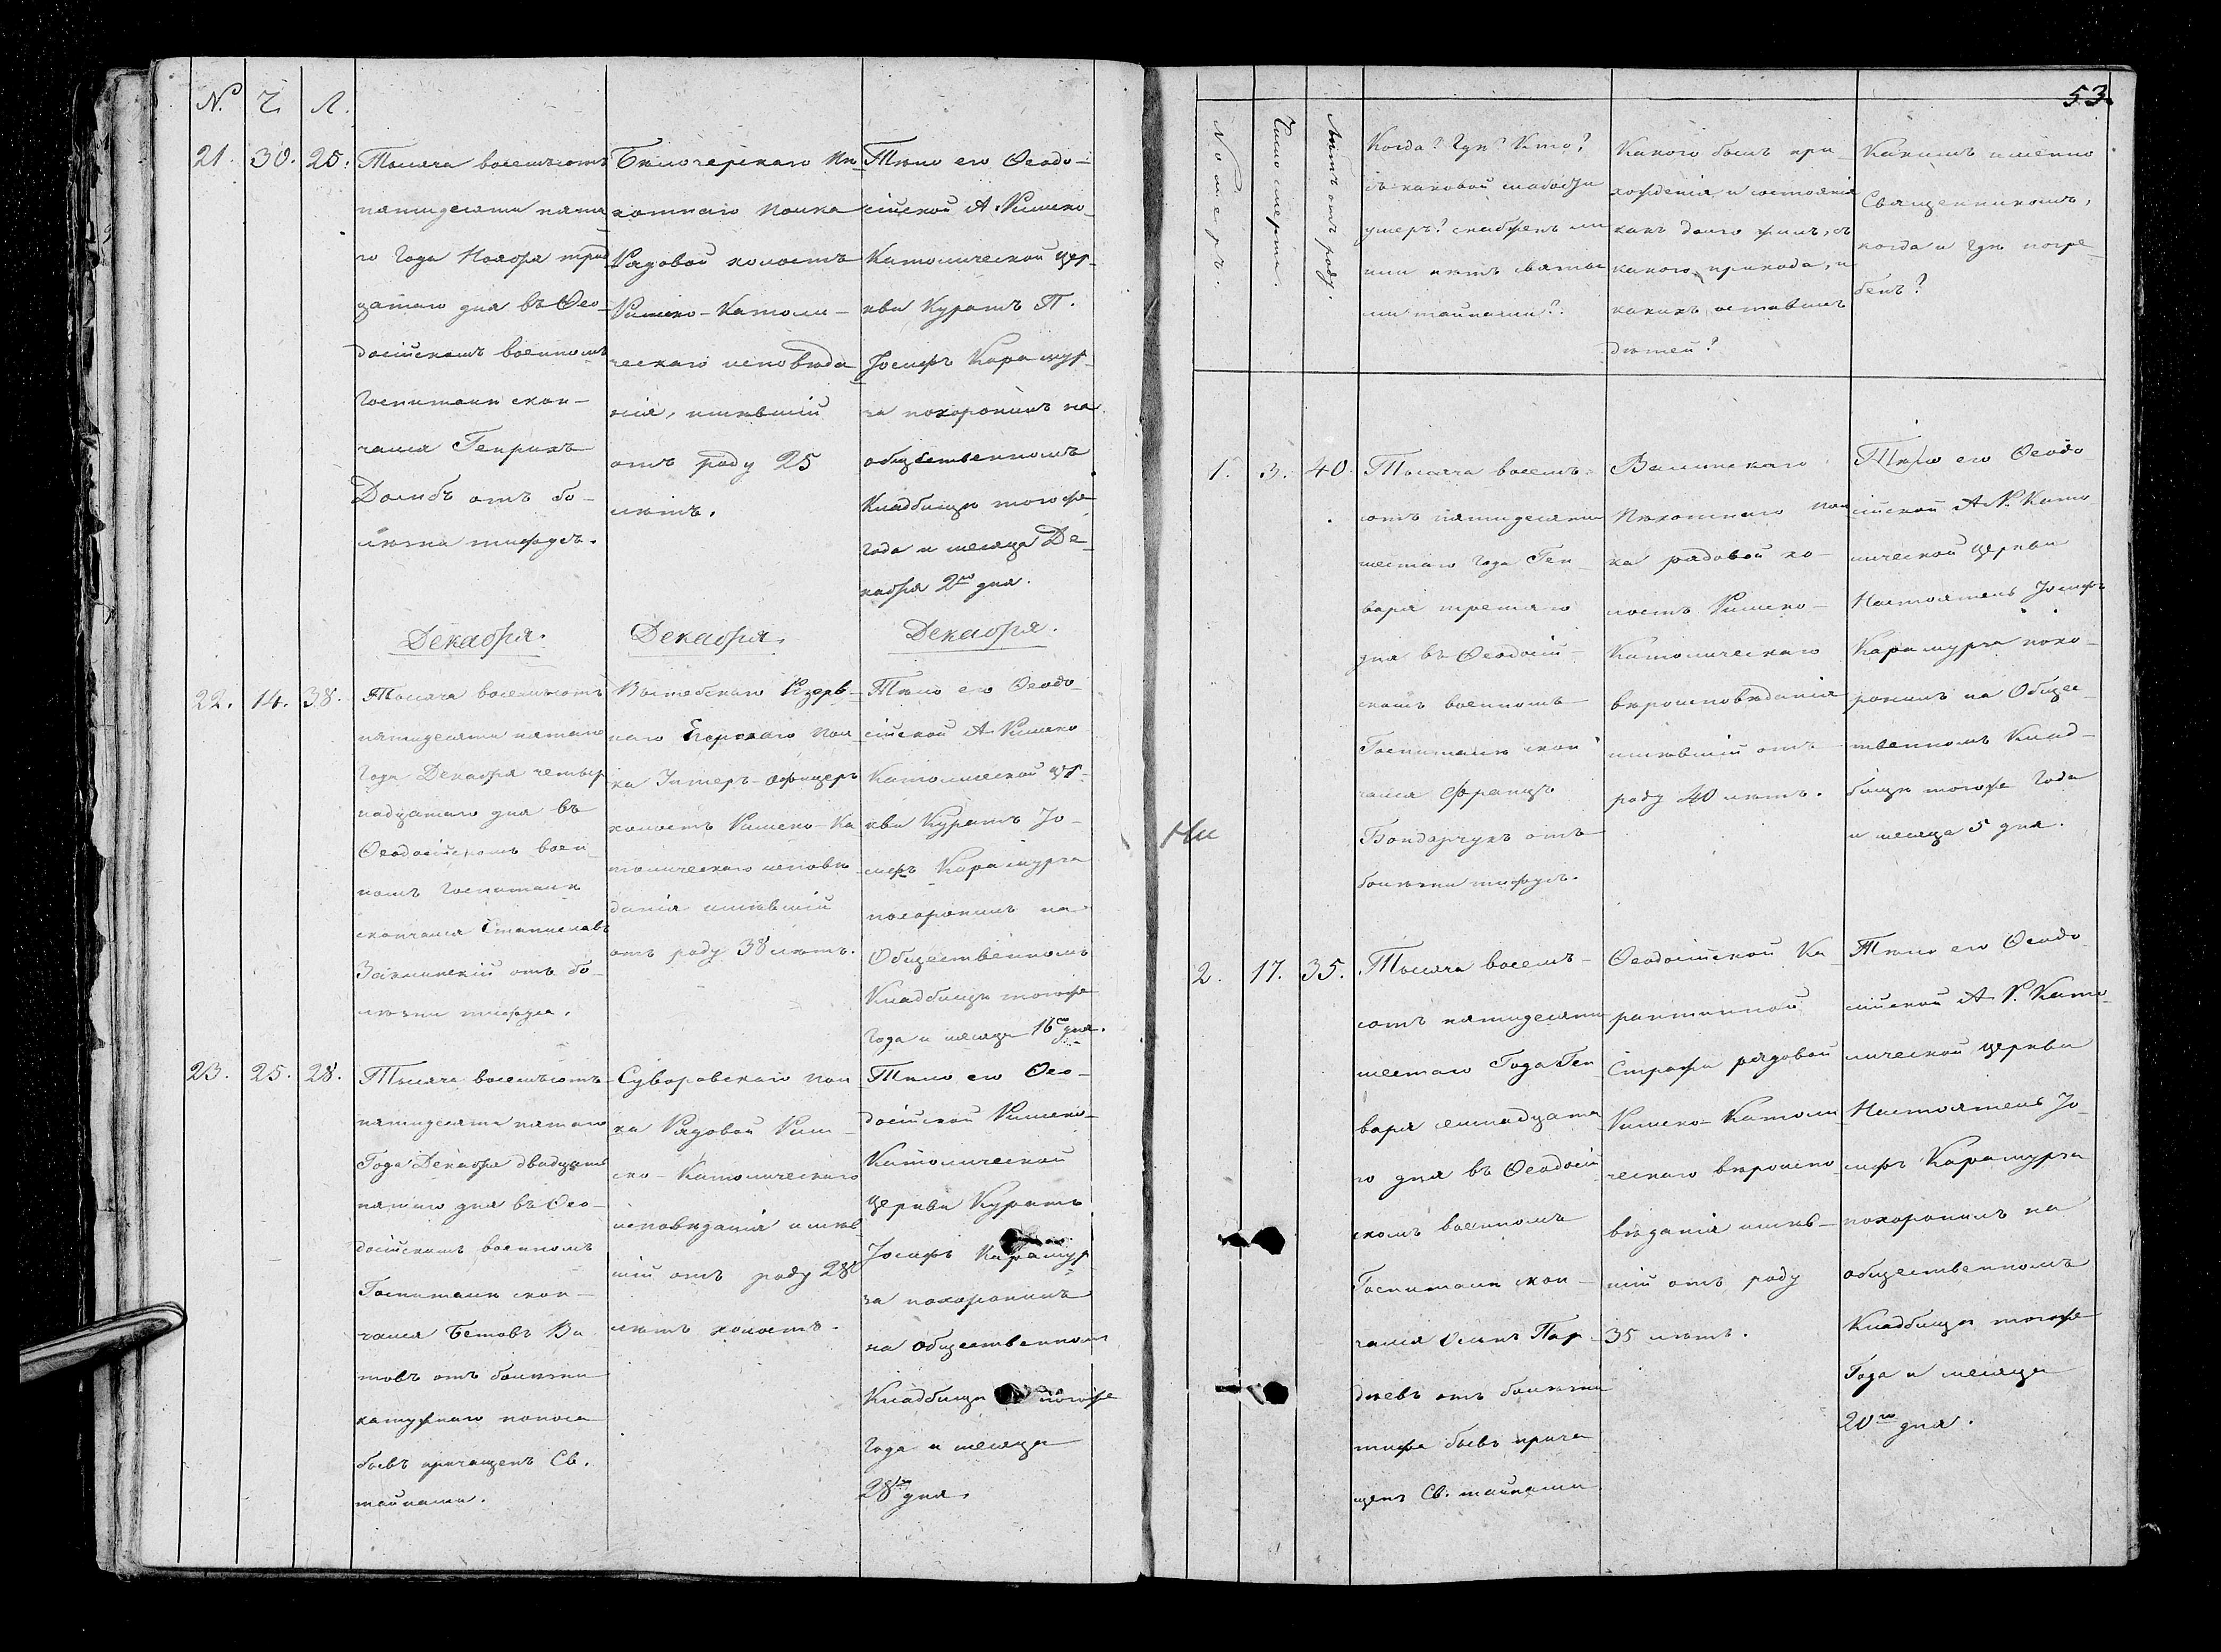 № Ч. Л.
21. 30. 25.
Тысяча восемьсотъ
пятидесяти пята
го года Ноября трид
цатаго дня въ Ѳео-
досійскомъ военномъ
Госпиталѣ скон-
чался Генрихъ
Домбъ отъ бо-
лѣзни тифусъ.
Бѣлозерскаго Пѣ
хотнаго полка
Рядовой холостъ
Римско-Католи-
ческаго исповѣда
нія, имѣвшій
отъ роду 25
лѣтъ.
Тѣло его Ѳеодо-
сійской А. Римско-
Католической Цер-
кви Куратъ П.
Іосифъ Карамур
за похоронилъ на
общественномъ
Кладбищѣ тогоже
года и месяца Де-
кабря 2го дня.
Декабря.
Декабря.
Декабря.
22. 14. 38.
Тысяча восемьсотъ
пятидесяти пятаго
Года Декабря четыр
надцатаго дня въ
Ѳеодосійскомъ воен
номъ Госпиталѣ
скончался Станиславъ
отъ бо-
лѣзни тифуса.
Витебскаго Резерв-
наго Егерскаго Пол
ка Унтеръ-офицеръ
холостъ Римско-Ка
толическаго исповѣ
данія имѣвшій
отъ роду 38 лѣтъ.
Тѣло его Ѳеодо-
сійской А. Римско
Католической Цер-
кви Куратъ Іо-
сифъ Карамурза
похоронилъ на
Общественномъ
Кладбищѣ тогоже
Года и месяца 16го дня.
23. 25. 28.
Тысяча восемьсотъ
пятидесяти пятаго
Года Декабря двадцать
пятаго дня въ Ѳео-
досійскомъ военномъ
Госпиталѣ скон-
чался
отъ болѣзни
поноса
бывъ причащенъ Св.
тайнами.
Суворовскаго пол
ка Рядовой Рим-
ско-Католическаго
исповѣданія имѣв
шій отъ роду 28
лѣтъ холостъ.
Тѣло его Ѳео-
досійской Римско-
Католической
Церкви Куратъ
Іосифъ Карамур
за похоронилъ
на Общественномъ
Кладбищѣ тогоже
Года и месяца
28го дня.
53.
Номеръ.
Число смерти.
Лѣтъ отъ роду.
Когда? Гдѣ? Кто?
съ каковой слабости
умеръ? снабженъ ли
или нѣтъ святы
ми тайнами?
Какого былъ про
хожденія и состоянія
какъ долго жилъ, съ
какого прихода, и
какихъ оставилъ
дѣтей?
Какимъ именно
Священникомъ,
когда и гдѣ погре-
бенъ?
1. 3. 40.
Тысяча восемь-
сотъ пятидесяти
шестаго года Ген
варя третяго
дня въ Ѳеодосій-
скомъ военномъ
Госпиталѣ скон
чался Францъ
Бондарчукъ отъ
болѣзни тифусъ.
Волынскаго
Пѣхотнаго пол
ка рядовой хо-
лостъ Римско-
Католическаго
вѣроисповѣданія
имѣвшій отъ
роду 40 лѣтъ.
Тѣло его Ѳеодо
сійской А. Р. Като
лической церкви
Настоятель Іосифъ
Карамурза похо-
ронилъ на Общес-
твенномъ Клад-
бищѣ тогоже Года
и месяца 5 дня.
2. 17. 35.
Тысяча восемь-
сотъ пятидесяти
шестаго Года Ген
варя семнадцата
го дня въ Ѳеодосій
скомъ военномъ
Госпиталѣ скон-
чался Пар-
отъ болѣзни
тифа бывъ прича
щенъ Св. тайнами
Ѳеодосійской Ка
рантинной
Стражи рядовой
Римско-Католи
ческаго вѣроиспо
вѣданія имѣв-
шій отъ роду
35 лѣтъ.
Тѣло его Ѳеодо
сійской А. Р. Като-
лической церкви
Настоятель Іо-
сифъ Карамурза
похоронилъ на
общественномъ
Кладбищѣ тогоже
Года и месяца
20го дня.